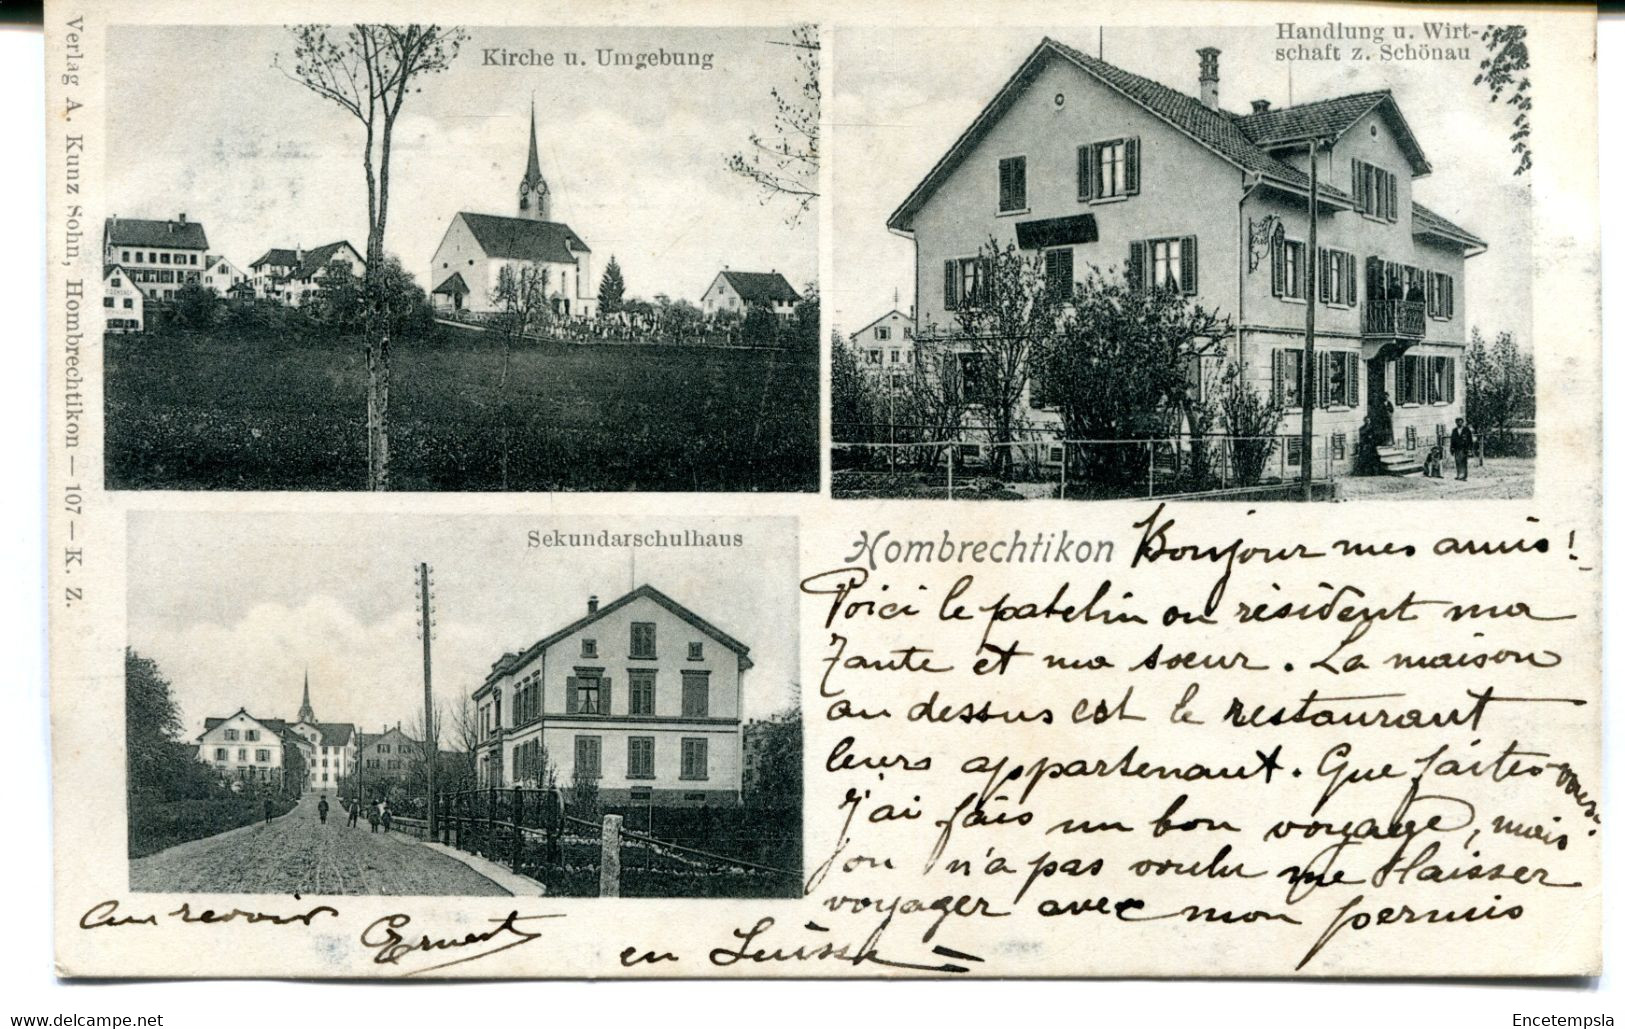 Verlag A. Kunz Sohn, Hombrechtikon — 107 — K. Z.
Kirche u. Umgebung
Handlung u. Wirt-
schaft z. Schönau
Sekundarschulhaus
Hombrechtikon
Bonjour mes amis!
Voici le patelin ou résident ma
Tante et ma sœur. La maison
au dessus est le restaurant
leurs appartenant. Que faites-vous?
j'ai fais un bon voyage, mais
on n'a pas voulu me laisser
voyager avec mon permis
en Suisse
au revoir
Ernest
delcampe.net
Encetempsla